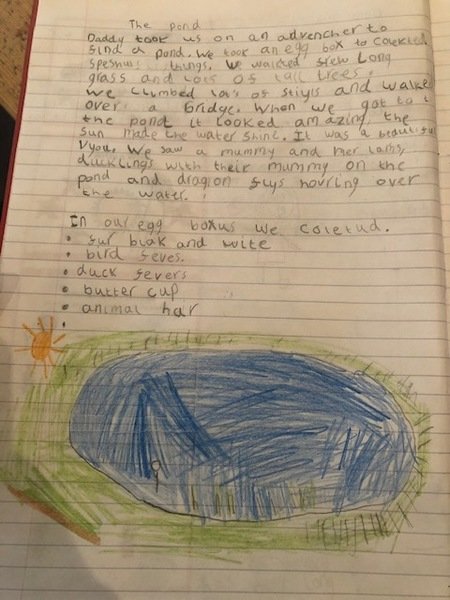 The Pond
Daddy took us on an advencher to
find a pond. We took an egg box to colekted
speshuls things. We walked frew long
grass and lots of tall trees.
We clumbed lots of stiyls and walke
over a bridge. When we got to t
the pond it looked amazing, the
sun made the water shine. It was a beautiful
Vyou. We saw a mummy and her lams,
ducklings with their mummy on the
pond and dragion fuys hovring over
the water.
In our egg boxus we coletud.
• fur blak and wite
• bird feves.
• duck fevers
• butter cup
• animal har
•